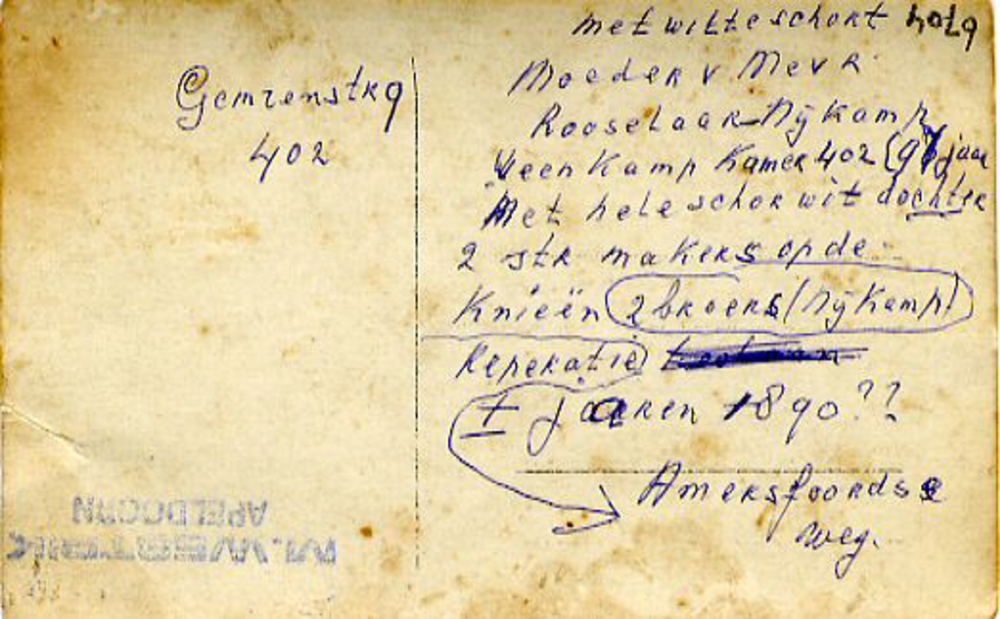 Gemzenstr 9
402
met witte schort 4079
Moeder v Mevr
Rooselaar-Nijkamp
Veenkamp Kamer 402 (97 jaar
Met hele schor wit dochter
2 str makers op de
Knieën 2 broers (Nijkamp)
Reperatie
± jaaren 1890??
Amersfoordse
weg.
M. WESTERIK
APELDOORN